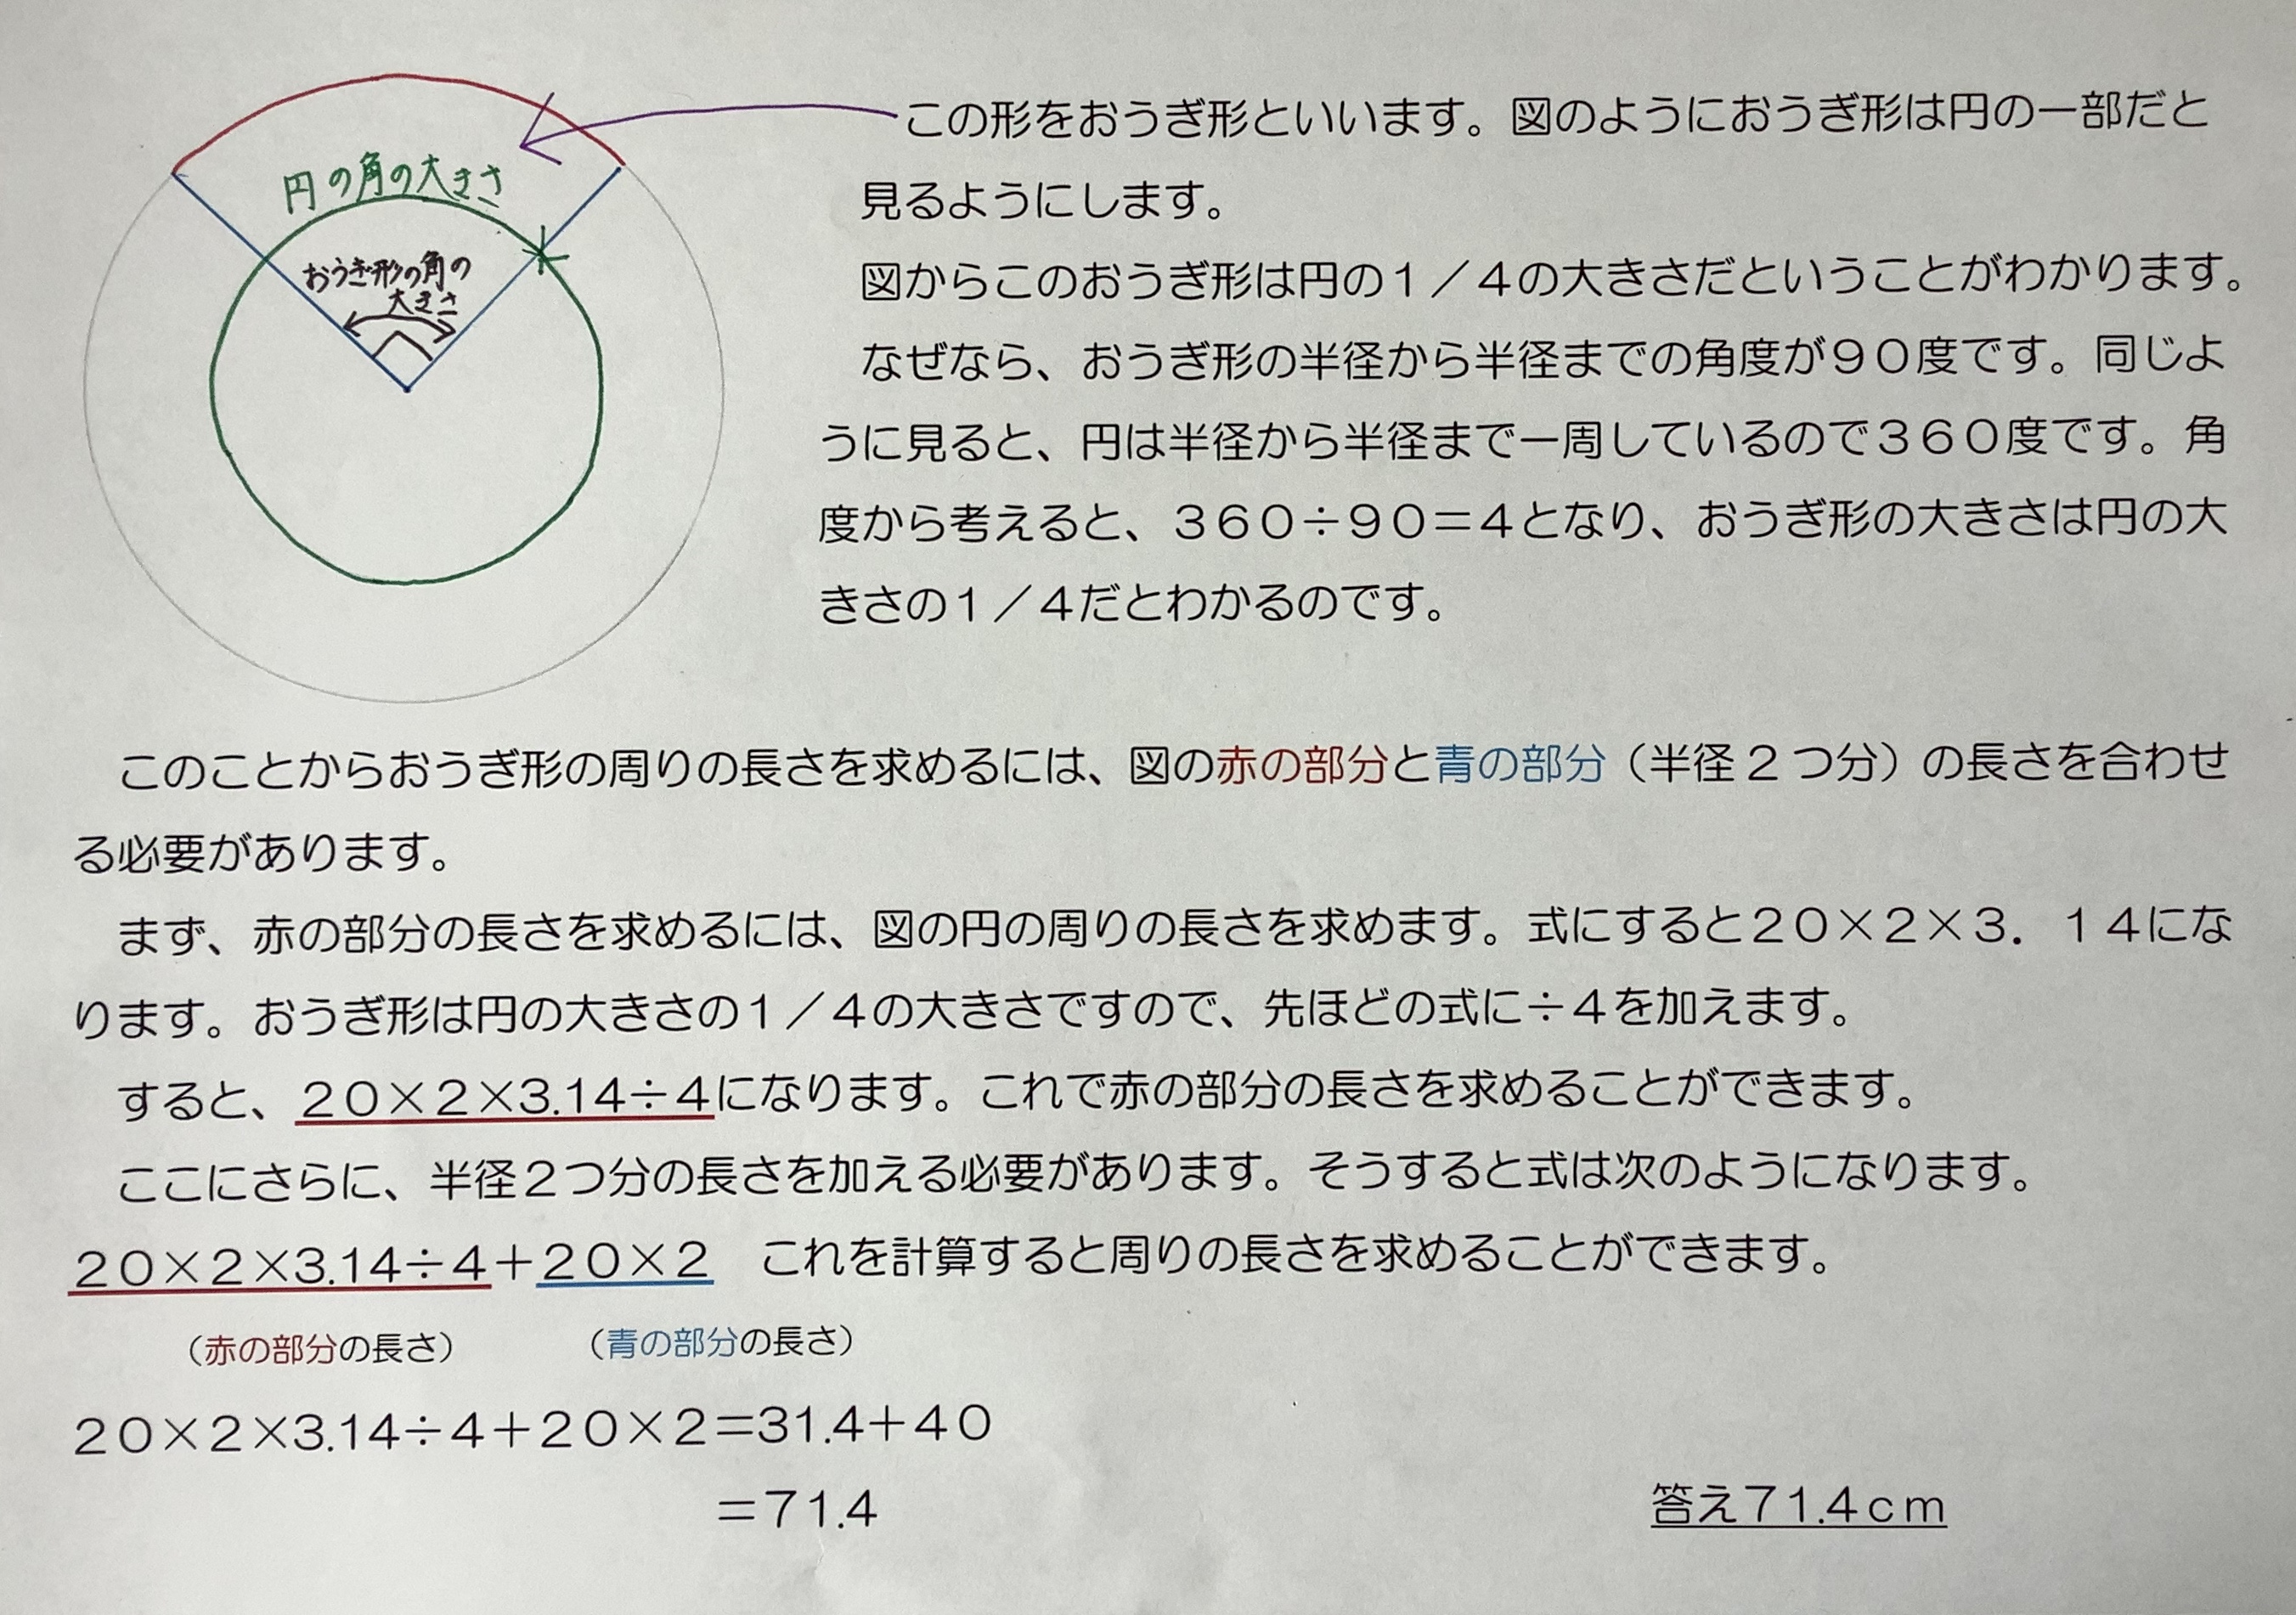 この形をおうぎ形といいます。図のようにおうぎ形は円の一部だと
見るようにします。
円の角の大きさ
おうぎ形の角の
大きさ
図からこのおうぎ形は円の１／４の大きさだということがわかります。
なぜなら、おうぎ形の半径から半径までの角度が９０度です。同じよ
うに見ると、円は半径から半径まで一周しているので３６０度です。角
度から考えると、３６０÷９０＝４となり、おうぎ形の大きさは円の大
きさの１／４だとわかるのです。
このことからおうぎ形の周りの長さを求めるには、図の赤の部分と青の部分（半径２つ分）の長さを合わせ
る必要があります。
まず、赤の部分の長さを求めるには、図の円の周りの長さを求めます。式にすると２０×２×３．１４にな
ります。おうぎ形は円の大きさの１／４の大きさですので、先ほどの式に÷４を加えます。
すると、２０×２×3.14÷４になります。これで赤の部分の長さを求めることができます。
ここにさらに、半径２つ分の長さを加える必要があります。そうすると式は次のようになります。
２０×２×3.14÷４＋２０×２　これを計算すると周りの長さを求めることができます。
（赤の部分の長さ）　（青の部分の長さ）
２０×２×3.14÷４＋２０×２＝31.4＋４０
＝71.4
答え71.4ｃｍ